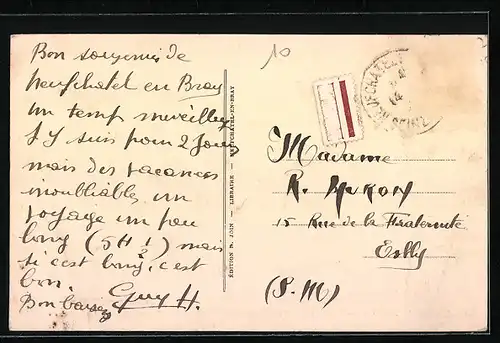 Bon souvenir de
neufchatel en Bray
un temps merveilleux
J'y suis pour 2 jours
mais des vacances
inoubliables un
voyage un peu
long (5H ½) mais
si c'est long, c'est
bon.
Bon baisers Guy H.
EDITION R. JOIN - LIBRAIRE - NEUFCHATEL-EN-BRAY
10
NEUFCHATEL
Madame
R.
15 Rue de la Fraternité
Esbly
(S.M)